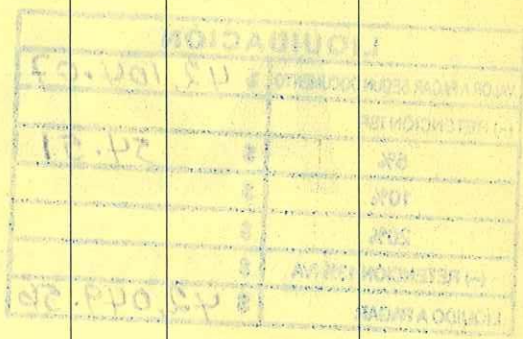 LIQUIDACION
VALOR A PAGAR SEGUN DOCUMENTO $ 42,104.07
(-) RETENCION ISR
5% $ 54.51
10% $
20% $
(-) RETENCION 13% IVA $
LIQUIDO A PAGAR $ 42,049.56